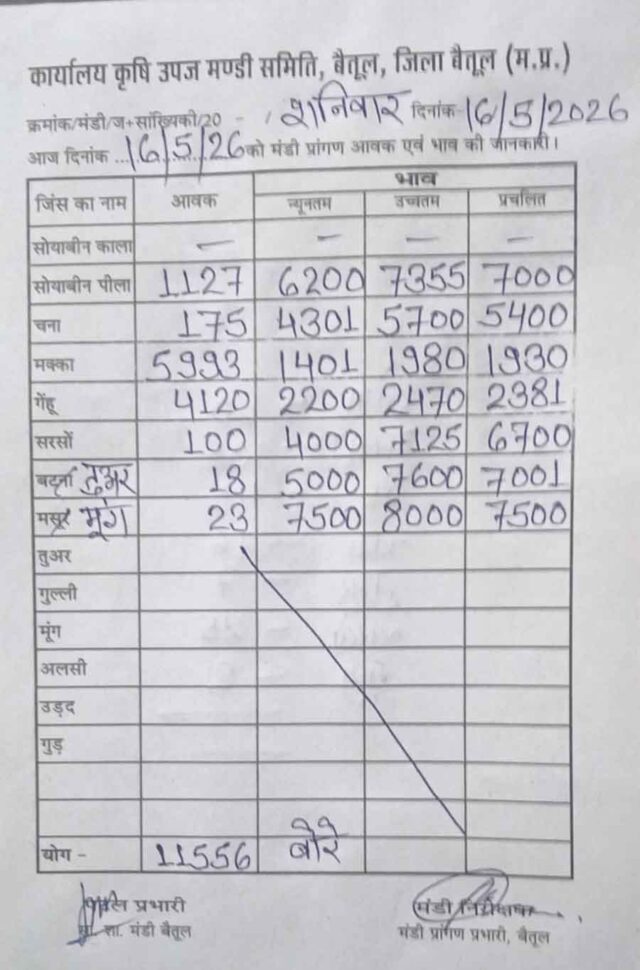 कार्यालय कृषि उपज मण्डी समिति, बैतूल, जिला बैतूल (म.प्र.)
क्रमांक/मंडी/ज+सांख्यिकी/20 - / शनिवार दिनांक 16/5/2026
आज दिनांक ...16/5/26 को मंडी प्रांगण आवक एवं भाव की जानकारी।
जिंस का नाम आवक भाव
न्यूनतम उच्चतम प्रचलित
सोयाबीन काला — — — —
सोयाबीन पीला 1127 6200 7355 7000
चना 175 4301 5700 5400
मक्का 5993 1401 1980 1930
गेंहू 4120 2200 2470 2381
सरसों 100 4000 7125 6700
तुअर 18 5000 7600 7001
मसूर मूंग 23 7500 8000 7500
तुअर
गुल्ली
मूंग
अलसी
उड़द
गुड़
योग - 11556 बोरे
प्रभारी मंडी निरीक्षक
शा. मंडी बैतूल मंडी प्रांगण प्रभारी, बैतूल